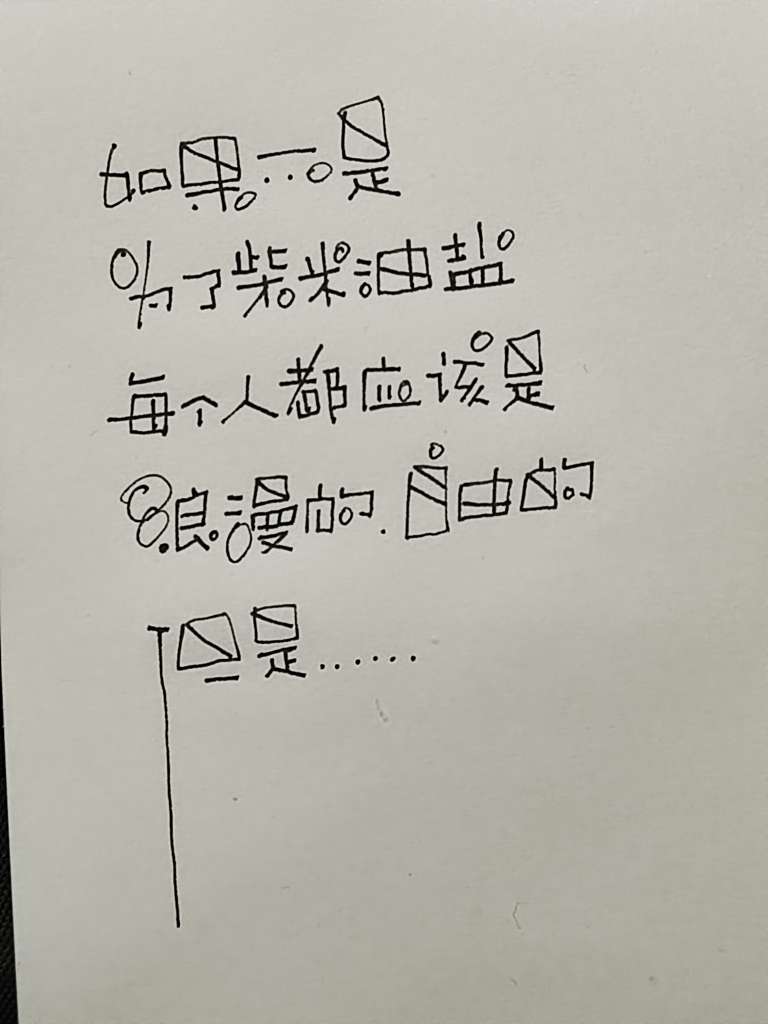 如果不是
为了柴米油盐
每个人都应该是
浪漫的.自由的
但是......